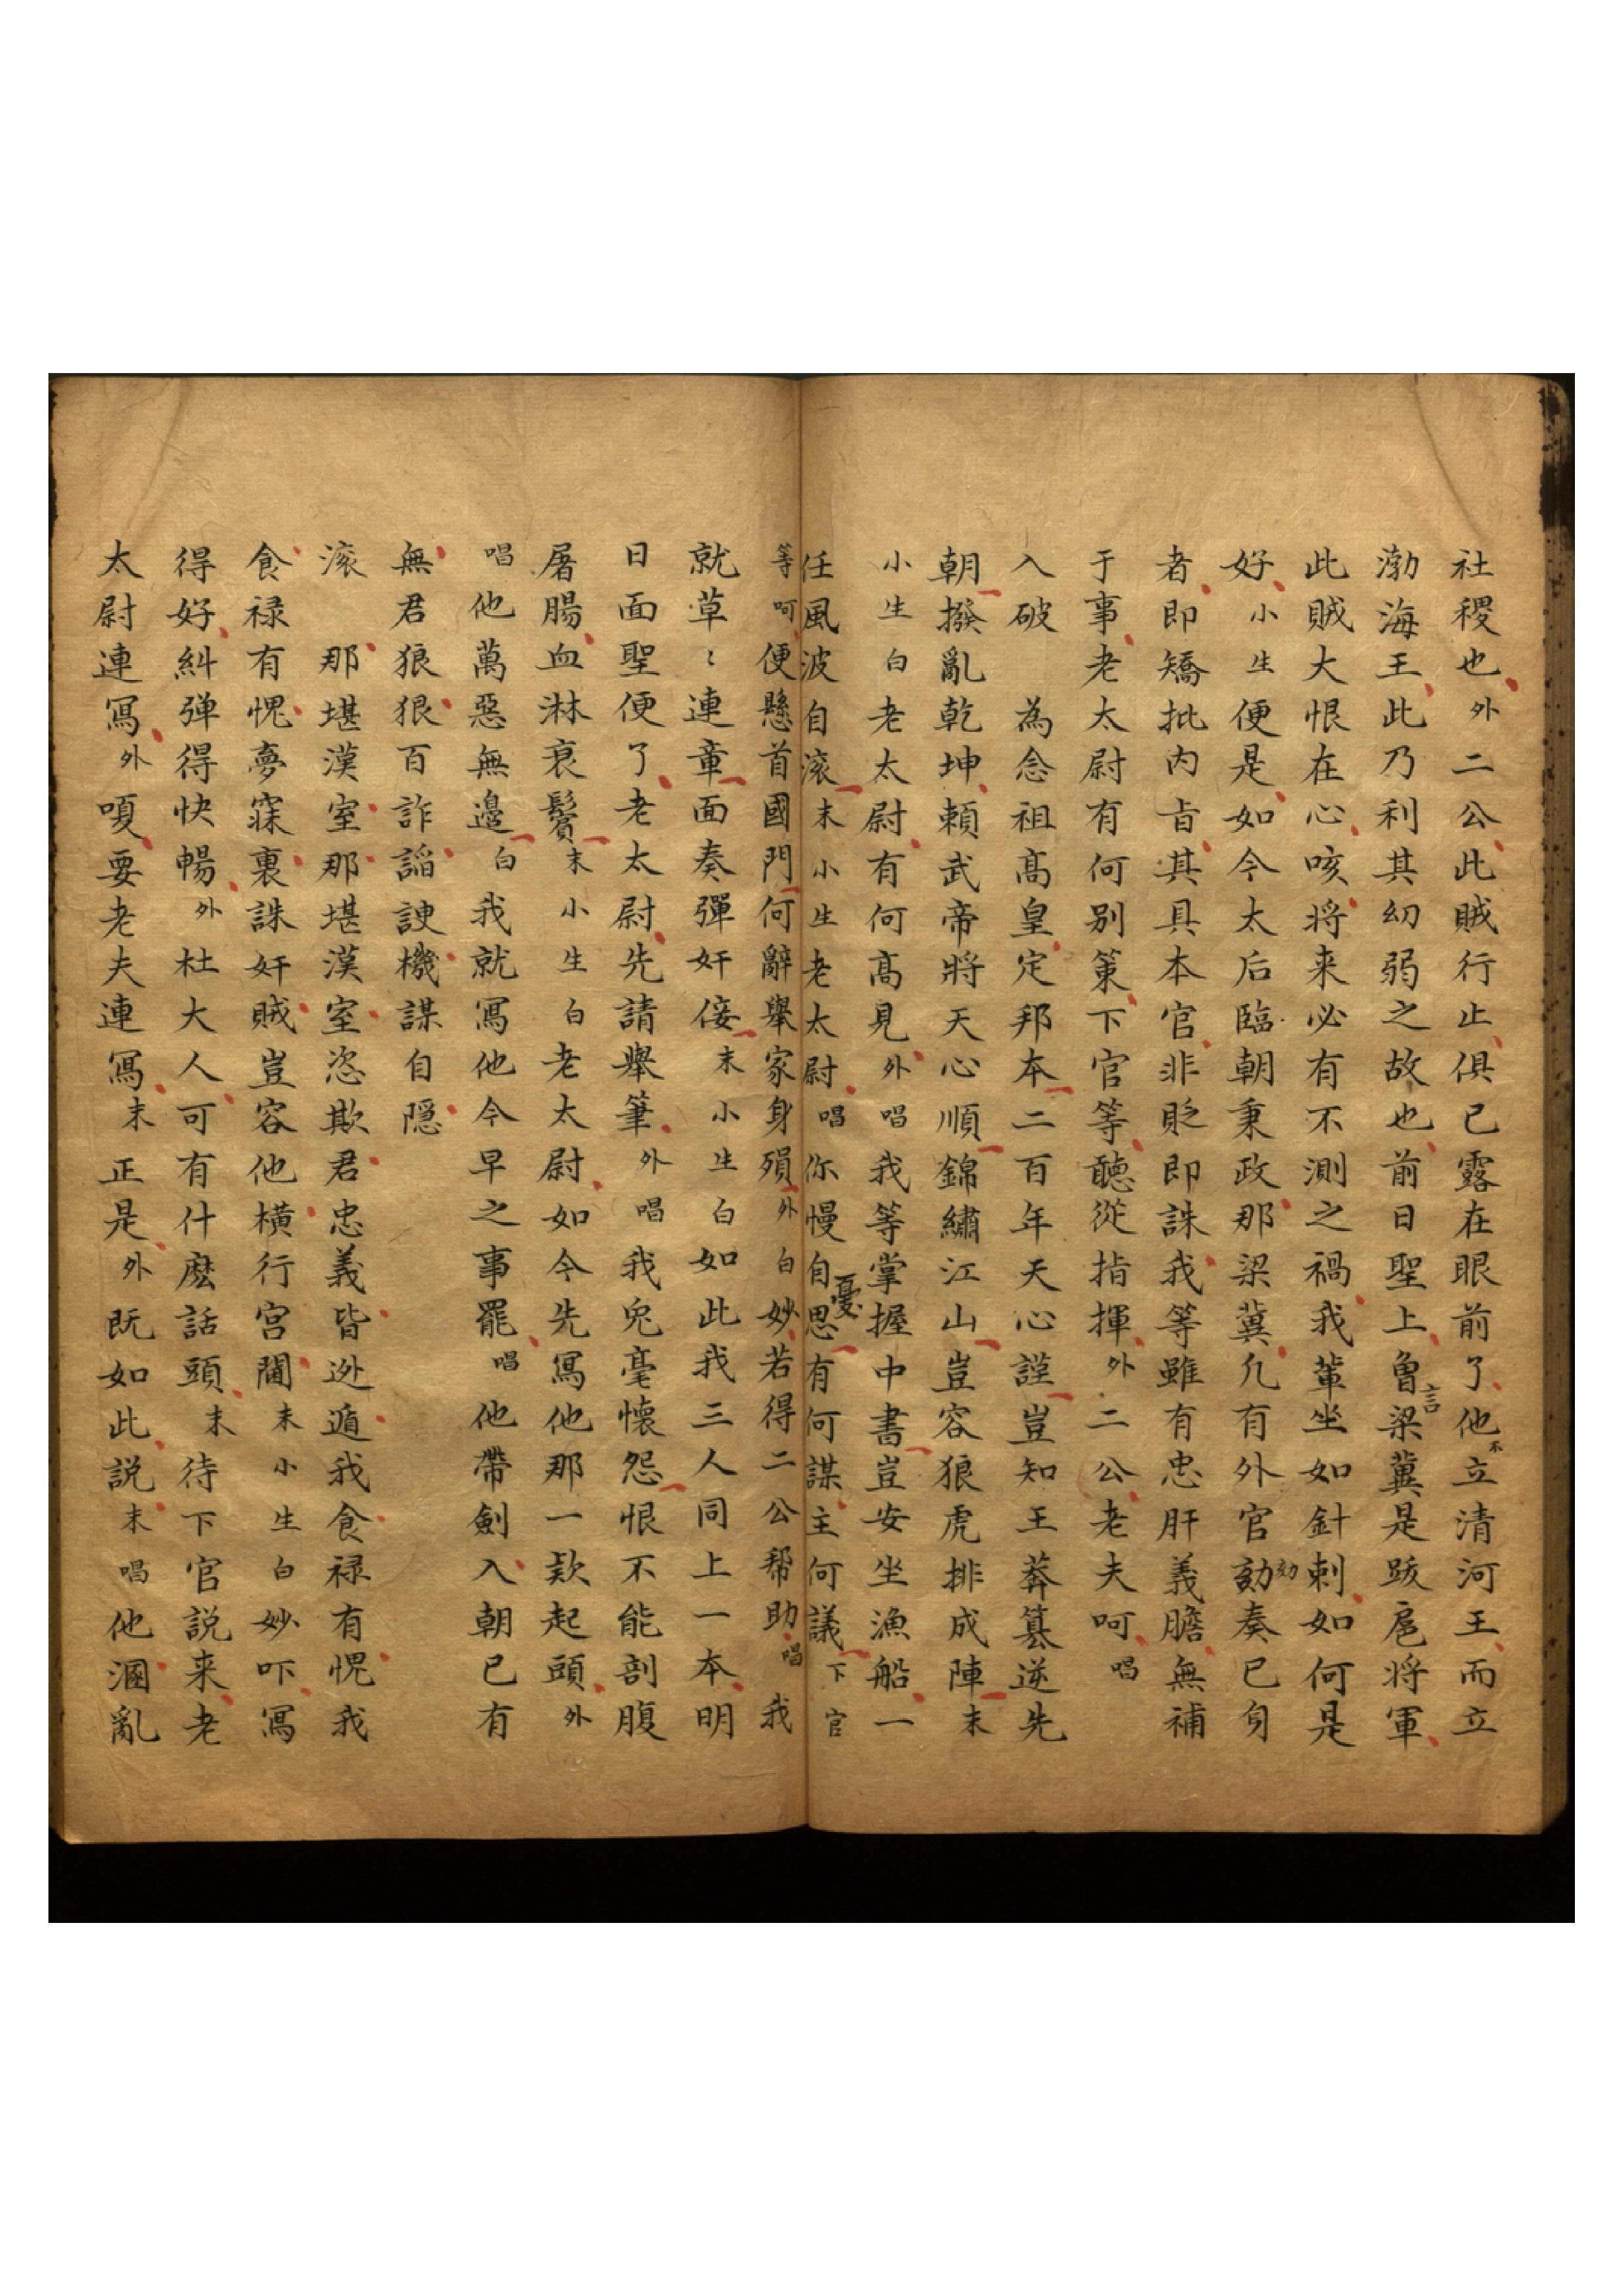 社稷也外二公此賊行止俱已露在眼前了他不立清河王而立
渤海王此乃利其幼弱之故也前日聖上曾言梁冀是跋扈將軍
此賊大恨在心咳将来必有不測之禍我輩坐如針刺如何是
好小生便是如今太后臨朝秉政那梁冀凡有外官劾奏已身
者即矯批内旨其具本官非貶即誅我等雖有忠肝義膽無補
于事老太尉有何别策下官等聽從指揮外二公老夫呵唱
入破 為念祖髙皇定邦本二百年天心謹豈知王莽篡逆先
朝撥亂乾坤頼武帝將天心順錦繡江山豈容狼虎排成陣末
小生白老太尉有何髙見外唱我等掌握中書豈安坐漁船一
任風波自滚末小生老太尉唱你慢自憂思有何謀主何議下官
等呵便懸首國門何辭舉家身殞外白妙若得二公帮助唱我
就草〻連章面奏彈奸佞末小生白如此我三人同上一本明
日面聖便了老太尉先請舉筆外唱我兔毫懷怨恨不能剖腹
屠腸血淋衰鬢末小生白老太尉如今先寫他那一欵起頭外
唱他萬惡無邊白我就寫他今早之事罷唱他帶劍入朝已有
無君狼狠百詐謟諛機謀自隠
滚 那堪漢室那堪漢室恣欺君忠義皆迯遁我食禄有愧我
食禄有愧夢寐裏誅奸賊豈容他横行宫闈末小生白妙吓寫
得好糾弹得快暢外杜大人可有什麽話頭末待下官説来老
太尉連寫外嗄要老夫連寫末正是外既如此説末唱他溷亂